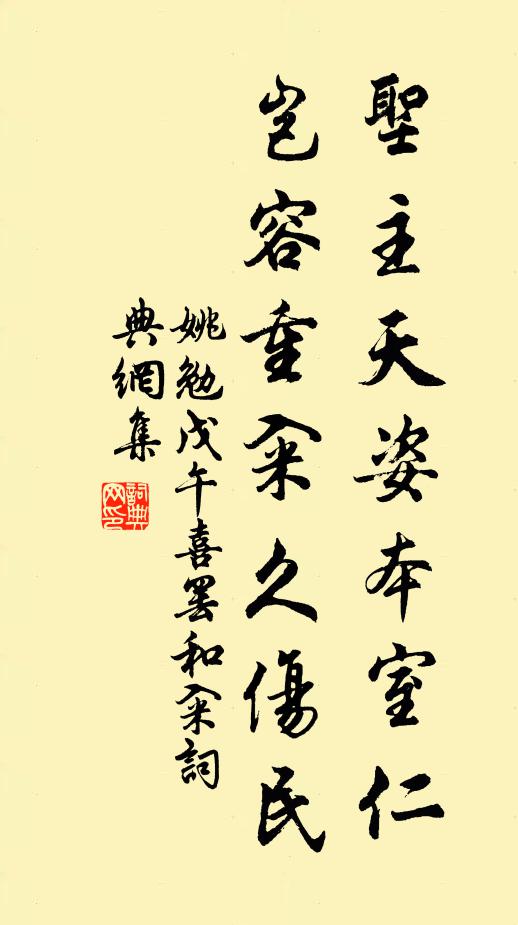 聖主天姿本室仁
豈容重籴久傷民
姚勉戊午喜罢和籴詞
典網集
詞典网印